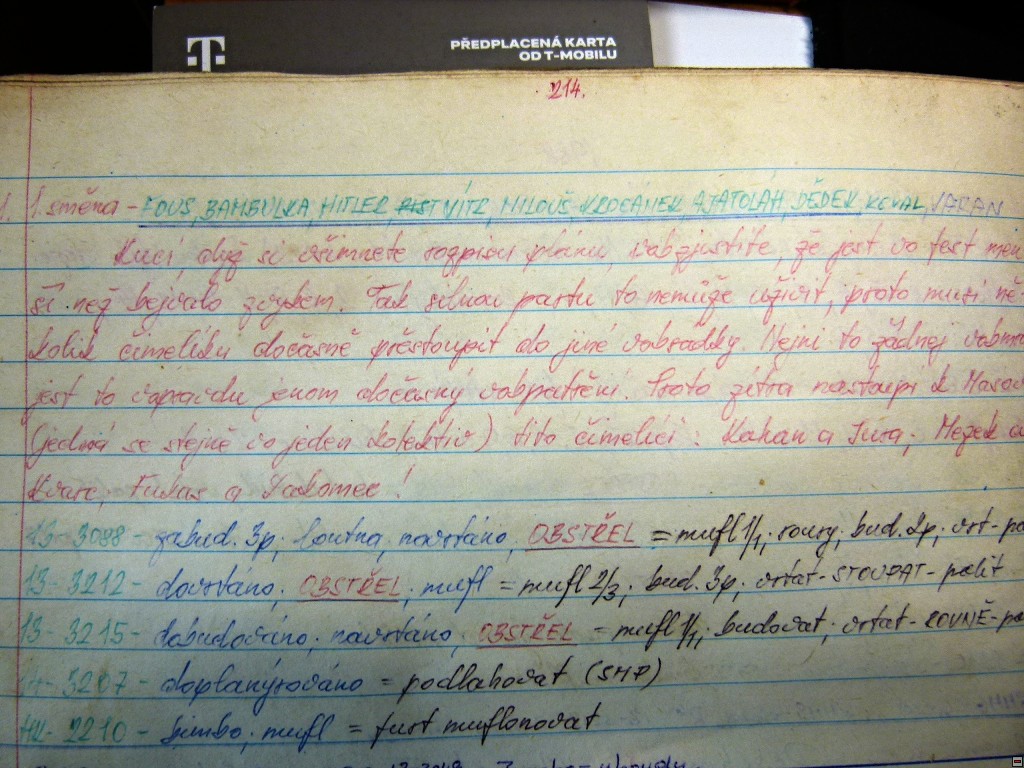 T
PŘEDPLACENÁ KARTA
OD T-MOBILU
214.
1. 1. směna - FOUS, BAMBULKA, HITLER, VÍTR, MILOUŠ, KROCÁNEK, AJATOLÁH, DĚDEK, KUVAL, VACAN
Kucí, dyž si všimnete rozpisu plánu, vobzjistíte, že jest vo fest men
ší než bejvalo zvykem. Tak silnou partu to nemůže uživit, proto musí ně-
kolik čimelíku dočasně přestoupit do jiné vobrádky. Nejni to žádnej
jest to vopravdu jenom dočasný vobpatření. Proto zítra nastoupí k
(jedná se stejně vo jeden kolektiv) tito čimelíci: Kahan a Jura, Mezek a
Kvarc, Fukas a Lakomec!
13-3088 - zabud. 3p, loutna, navrtáno, OBSTŘEL = mufl 1/1, roury, bud. 2p, vrt-
13-3212 - dovrtáno, OBSTŘEL, mufl = mufl 2/3, bud. 3p, vrtat-STOUPAT-pálit
13-3215 - dobudováno, navrtáno, OBSTŘEL = mufl 1/1, budovat, vrtat-ROVNĚ-
14-3207 - doplanýrováno = podlahovat (SHP)
44-2210 - bimbo, mufl = furt muflonovat